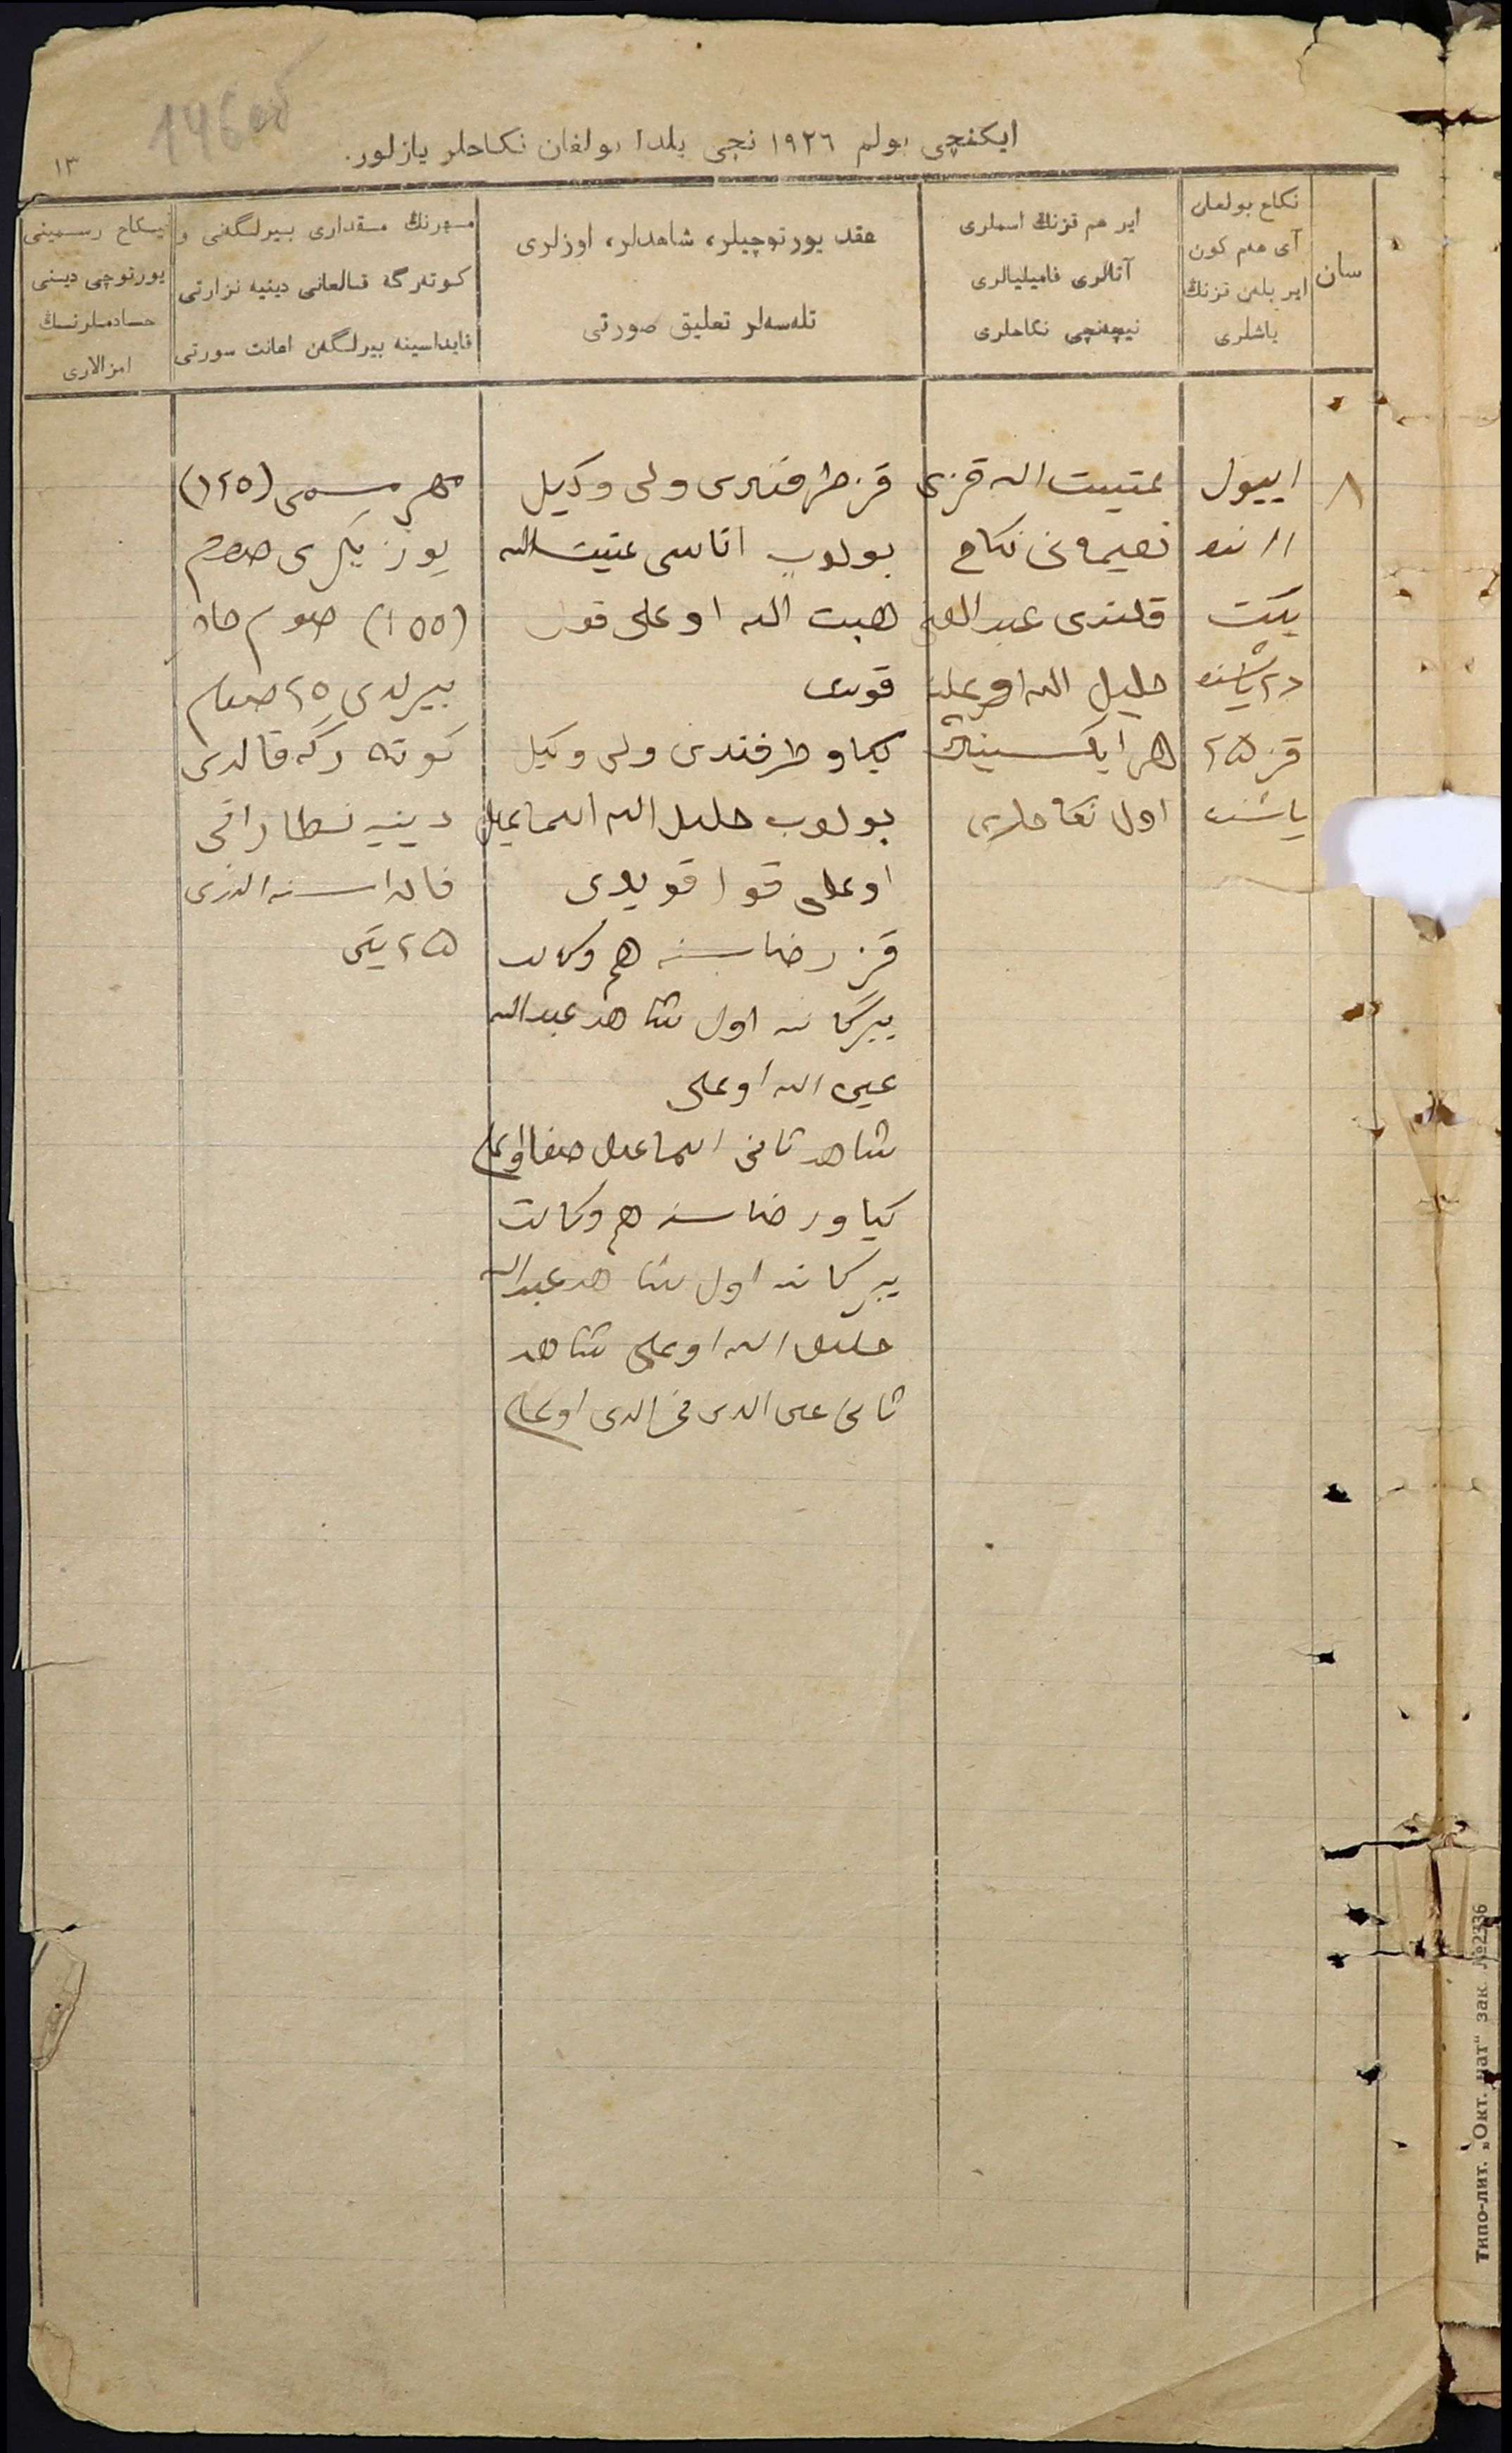 146 об
ایکنچی بولم ١٩٢٦ نچی یلدا بولغان نکاحلر یازلور.
١٣
سان
نکاح بولغان
آی هەم کون
ایر بلەن قزنڭ
یاشلری
ایر هم قزنڭ اسملری
آتالری فامیلیالری
نیچەنچی نکاحلری
عقد یورتوچیلر، شاهدلر، اوزلری
تلەسەلر تعلیق صورتی
مهرنڭ مقداری بیرلگەنی و
کوتەرگە قالغانی دینیه نزارتی
فایداسینه بیرلگەن اعانت سورتی
نیکاح رسمینی
یورتوچی دینی
خادملرنڭ
امزالاری
٨
اییول
١١ نده
یکت
یاشنده
قز ٢٥
یاشنده
عتیت الله قزی
نعیمه نی نکاح
قلندی
خلیل الله اوغلینه
هر ایکسینڭ
اول نکاحلری
قز طرفندن ولی وکیل
بولوب اتاسی عتیت الله
هبت الله اوغلی قول
قویدی
کیاو طرفندن ولی وکیل
بولوب خلیل الله اسماعیل
اوغلی قول قویدی
قز رضاسنه هم وکالت
بیرگاننه اول شاهد عبدالله
الله اوغلی
شاهد ثانی اسماعیل صفا اوغلی
کیاو رضاسنه هم وکالت
بیرگاننه اول شاهد عبدالله
خلیل الله اوغلی شاهد
ثانی الدین فخرالدین اوغلی
مهر مسمی (١٢٥)
یوز یگرمی صوم
(١٠٠) صوم حاد
بیرلدی ٢٥ صوم
کوتەرگه قالدی
دینیه نظاراتی
فایداسنه الندی
٢٥ تین
Типо-лит. „Окт. нат“ зак №2336